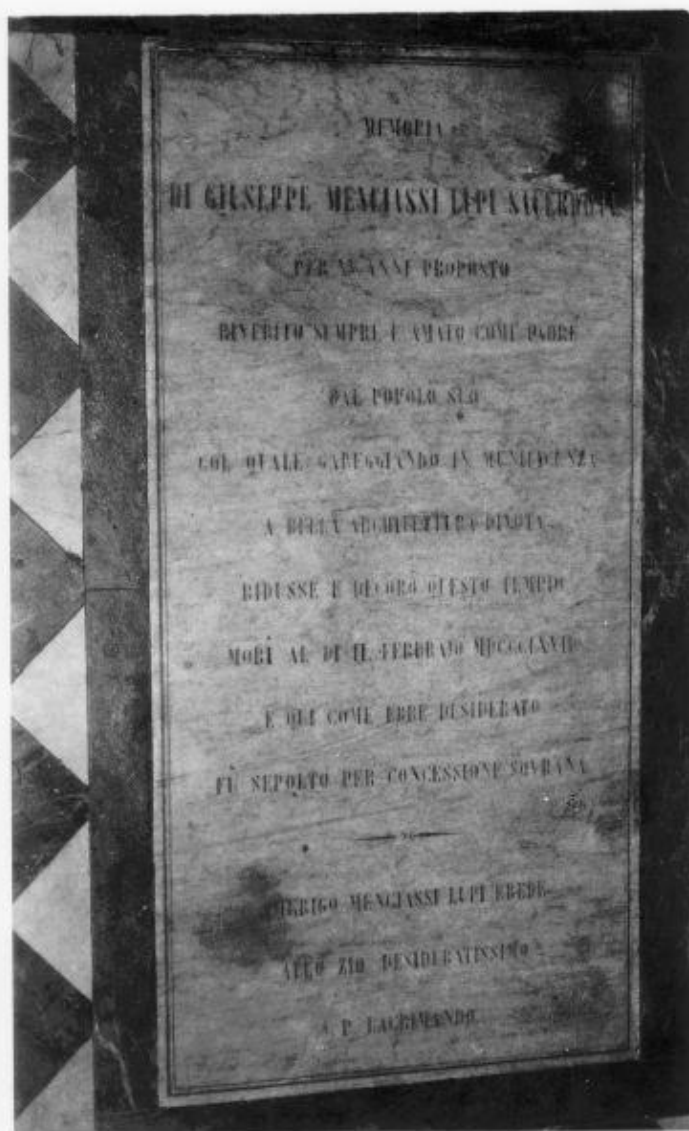 MEMORIA
DI GIUSEPPE MENCIASSI LUPI SACERDOTE
PER ANNI PROPOSTO
RIVERITO SEMPRE E AMATO COME PADRE
DAL POPOLO SUO
COL QUALE GAREGGIANDO IN MUNIFICENZA
A BELLA ARCHITETTURA
RIDUSSE E DECORÒ QUESTO TEMPIO
MORÌ AL DI II FEBBRAIO
E QUI COME EBBE DESIDERATO
FÙ SEPOLTO PER CONCESSIONE SOVRANA
AMERIGO MENCIASSI LUPI EREDE
ALLO ZIO DESIDERATISSIMO
P. LACRIMANDO